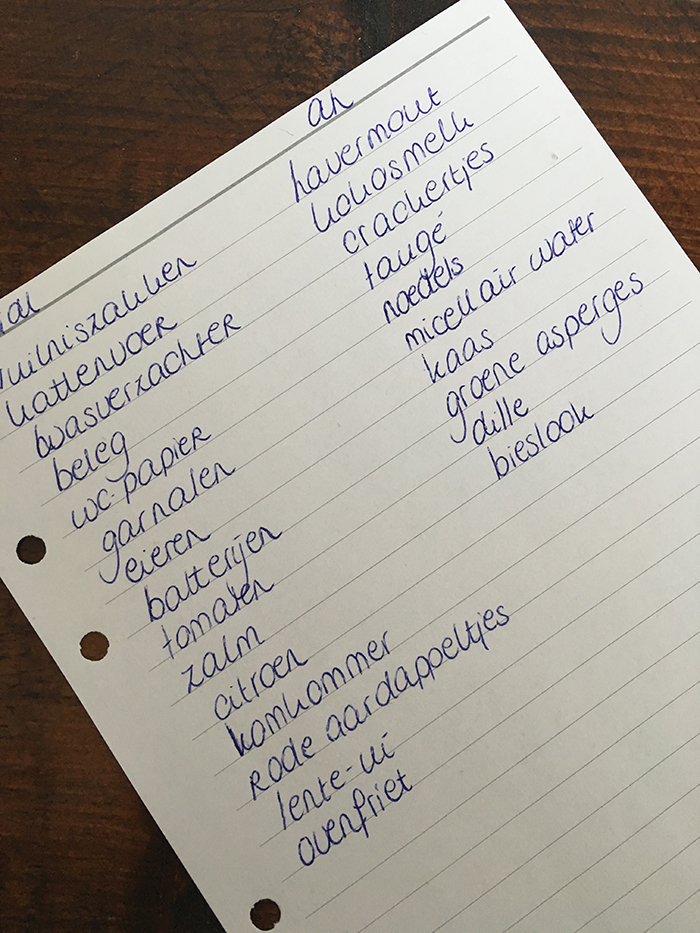 vuilniszakken
kattenvoer
wasverzachter
beleg
wc-papier
garnalen
eieren
batterijen
tomaten
zalm
citroen
komkommer
rode aardappeltjes
lente-ui
ovenfriet
ah
havermout
kokosmelk
crackertjes
taugé
noedels
micellair water
kaas
groene asperges
dille
bieslook